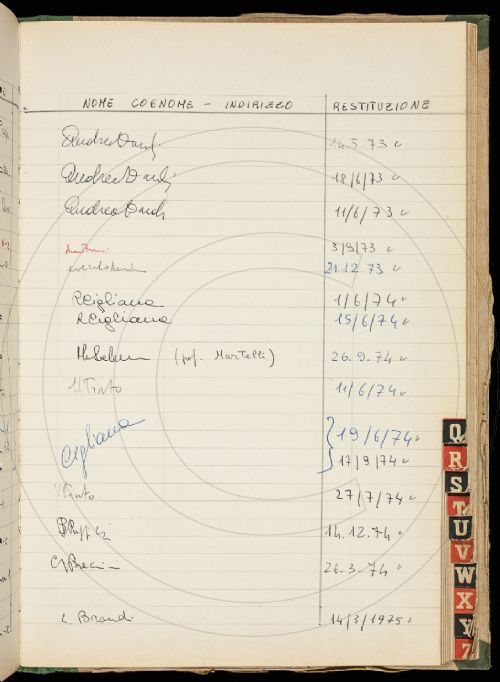 NOME COGNOME - INDIRIZZO RESTITUZIONE
Andrea Dardi 14.5.73
Andrea Dardi 18/6/73
Andrea Dardi 11/6/73
3/9/73
21.12.73
R Cigliana 1/6/74
R Cigliana 15/6/74
(prof. Martelli) 26.9.74
11/6/74
Cigliana 19/6/74
17/9/74
27/7/74
14.12.74
26.3.74
L. Brandi 14/3/1975
Q
R
S
T
U
V
W
X
Y
Z